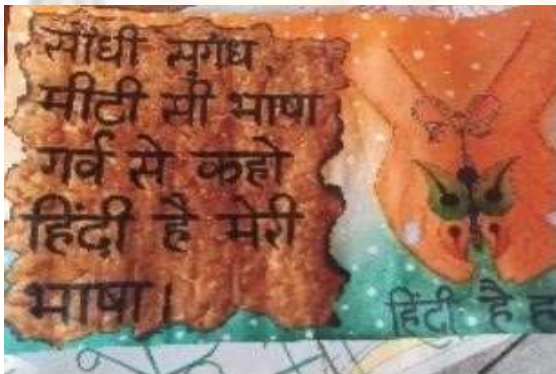 सोंधी सुगंध,
मीटी सी भाषा
गर्व से कहो
हिंदी है मेरी
भाषा।
हिंदी है